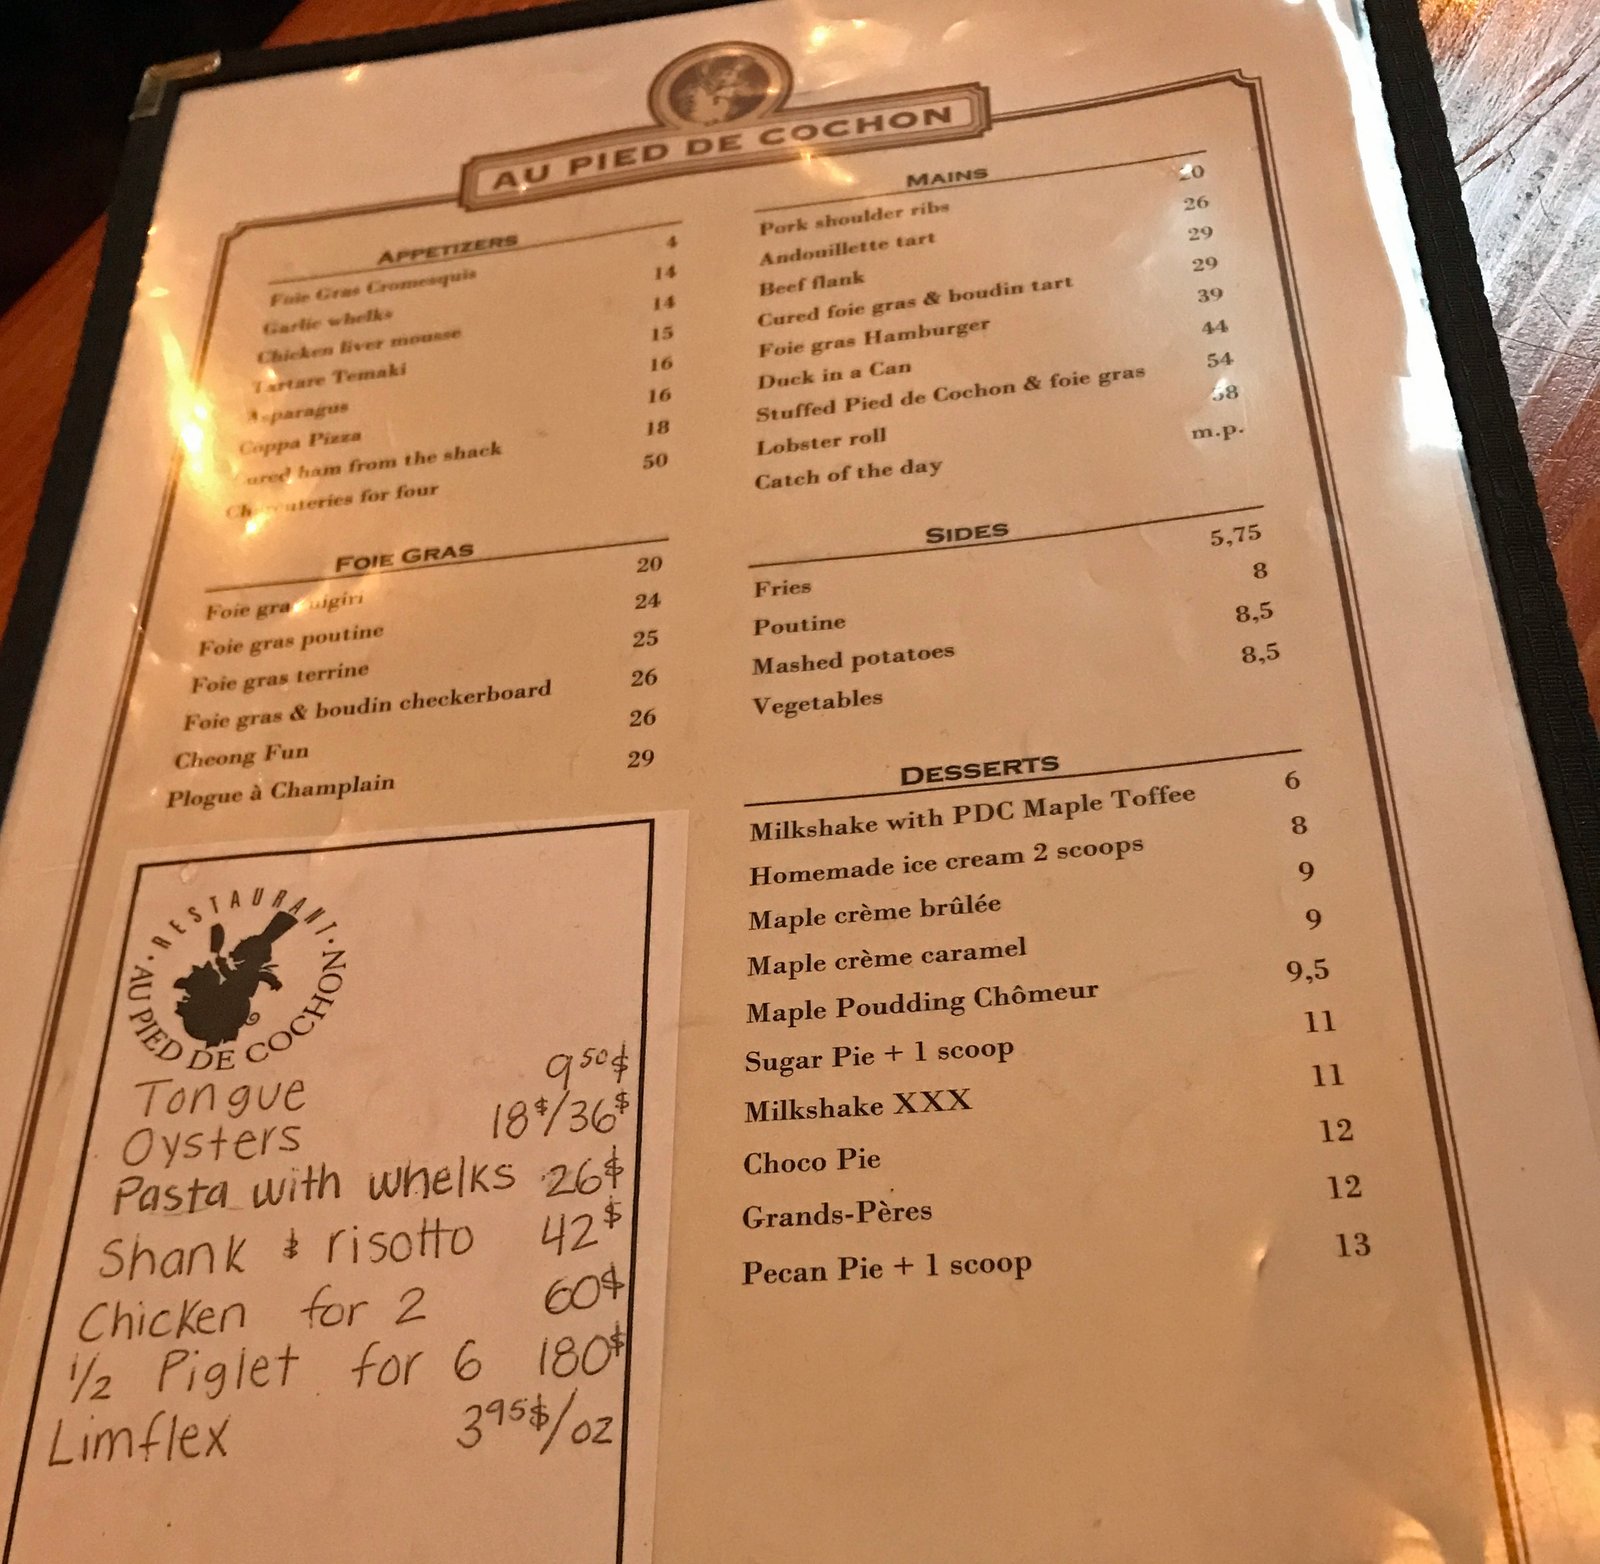 AU PIED DE COCHON
APPETIZERS
Foie Gras Cromesquis 4
Garlic whelks 14
Chicken liver mousse 14
Tartare Temaki 15
Asparagus 16
Coppa Pizza 16
Cured ham from the shack 18
Charcuteries for four 50
FOIE GRAS
Foie gras nigiri 20
Foie gras poutine 24
Foie gras terrine 25
Foie gras & boudin checkerboard 26
Cheong Fun 26
Plogue à Champlain 29
RESTAURANT
AU PIED DE COCHON
Tongue 9 50$
Oysters 18$/36$
Pasta with whelks 26$
Shank & risotto 42$
Chicken for 2 60$
1/2 Piglet for 6 180$
Limflex 3 95$/oz
MAINS
Pork shoulder ribs 20
Andouillette tart 26
Beef flank 29
Cured foie gras & boudin tart 29
Foie gras Hamburger 39
Duck in a Can 44
Stuffed Pied de Cochon & foie gras 54
Lobster roll 58
Catch of the day m.p.
SIDES
Fries 5,75
Poutine 8
Mashed potatoes 8,5
Vegetables 8,5
DESSERTS
Milkshake with PDC Maple Toffee 6
Homemade ice cream 2 scoops 8
Maple crème brûlée 9
Maple crème caramel 9
Maple Poudding Chômeur 9,5
Sugar Pie + 1 scoop 11
Milkshake XXX 11
Choco Pie 12
Grands-Pères 12
Pecan Pie + 1 scoop 13